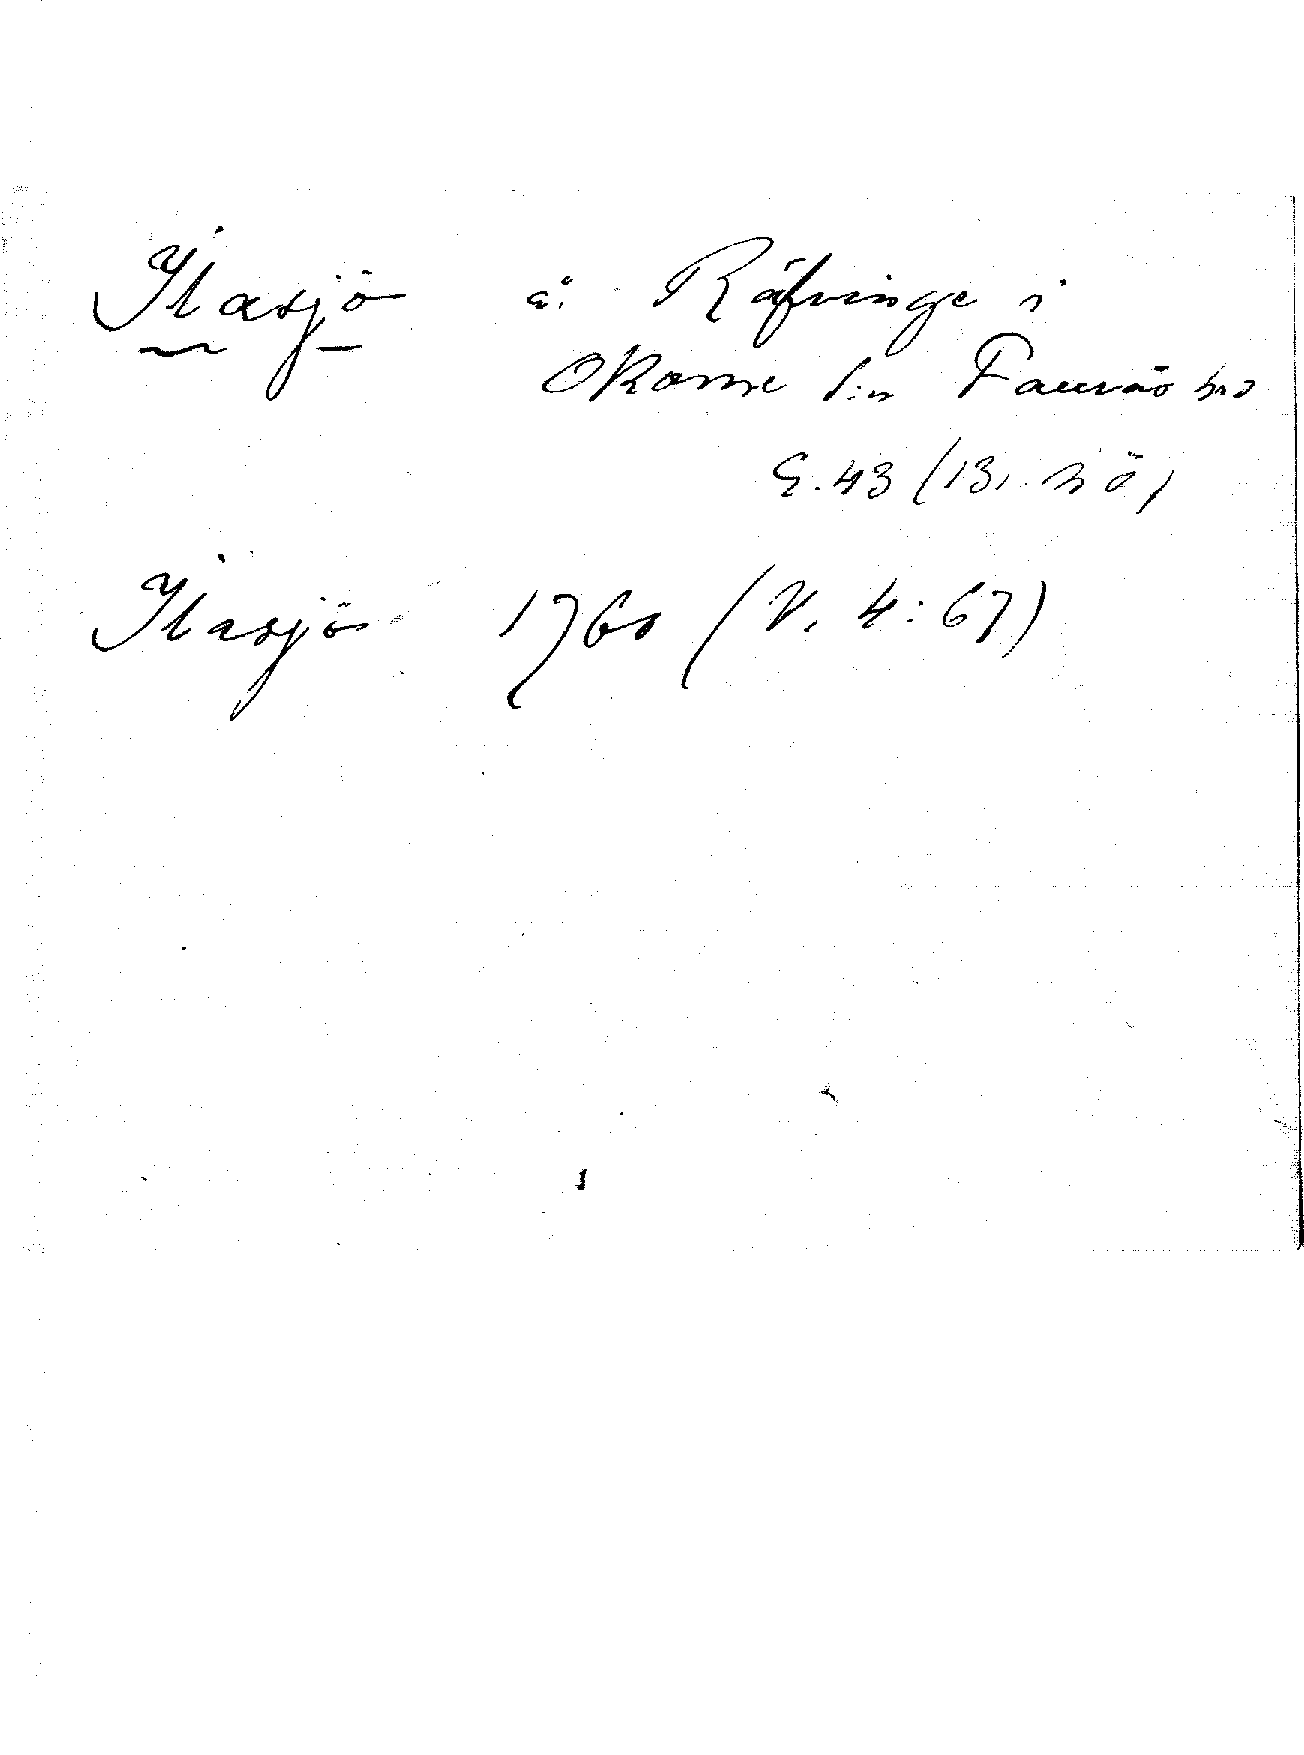 Ilasjö å. Räfvinge i
Okome s:n Faurås hd
G. 43 (13, nö)
Ilasjö 1760 (V. 4:67)